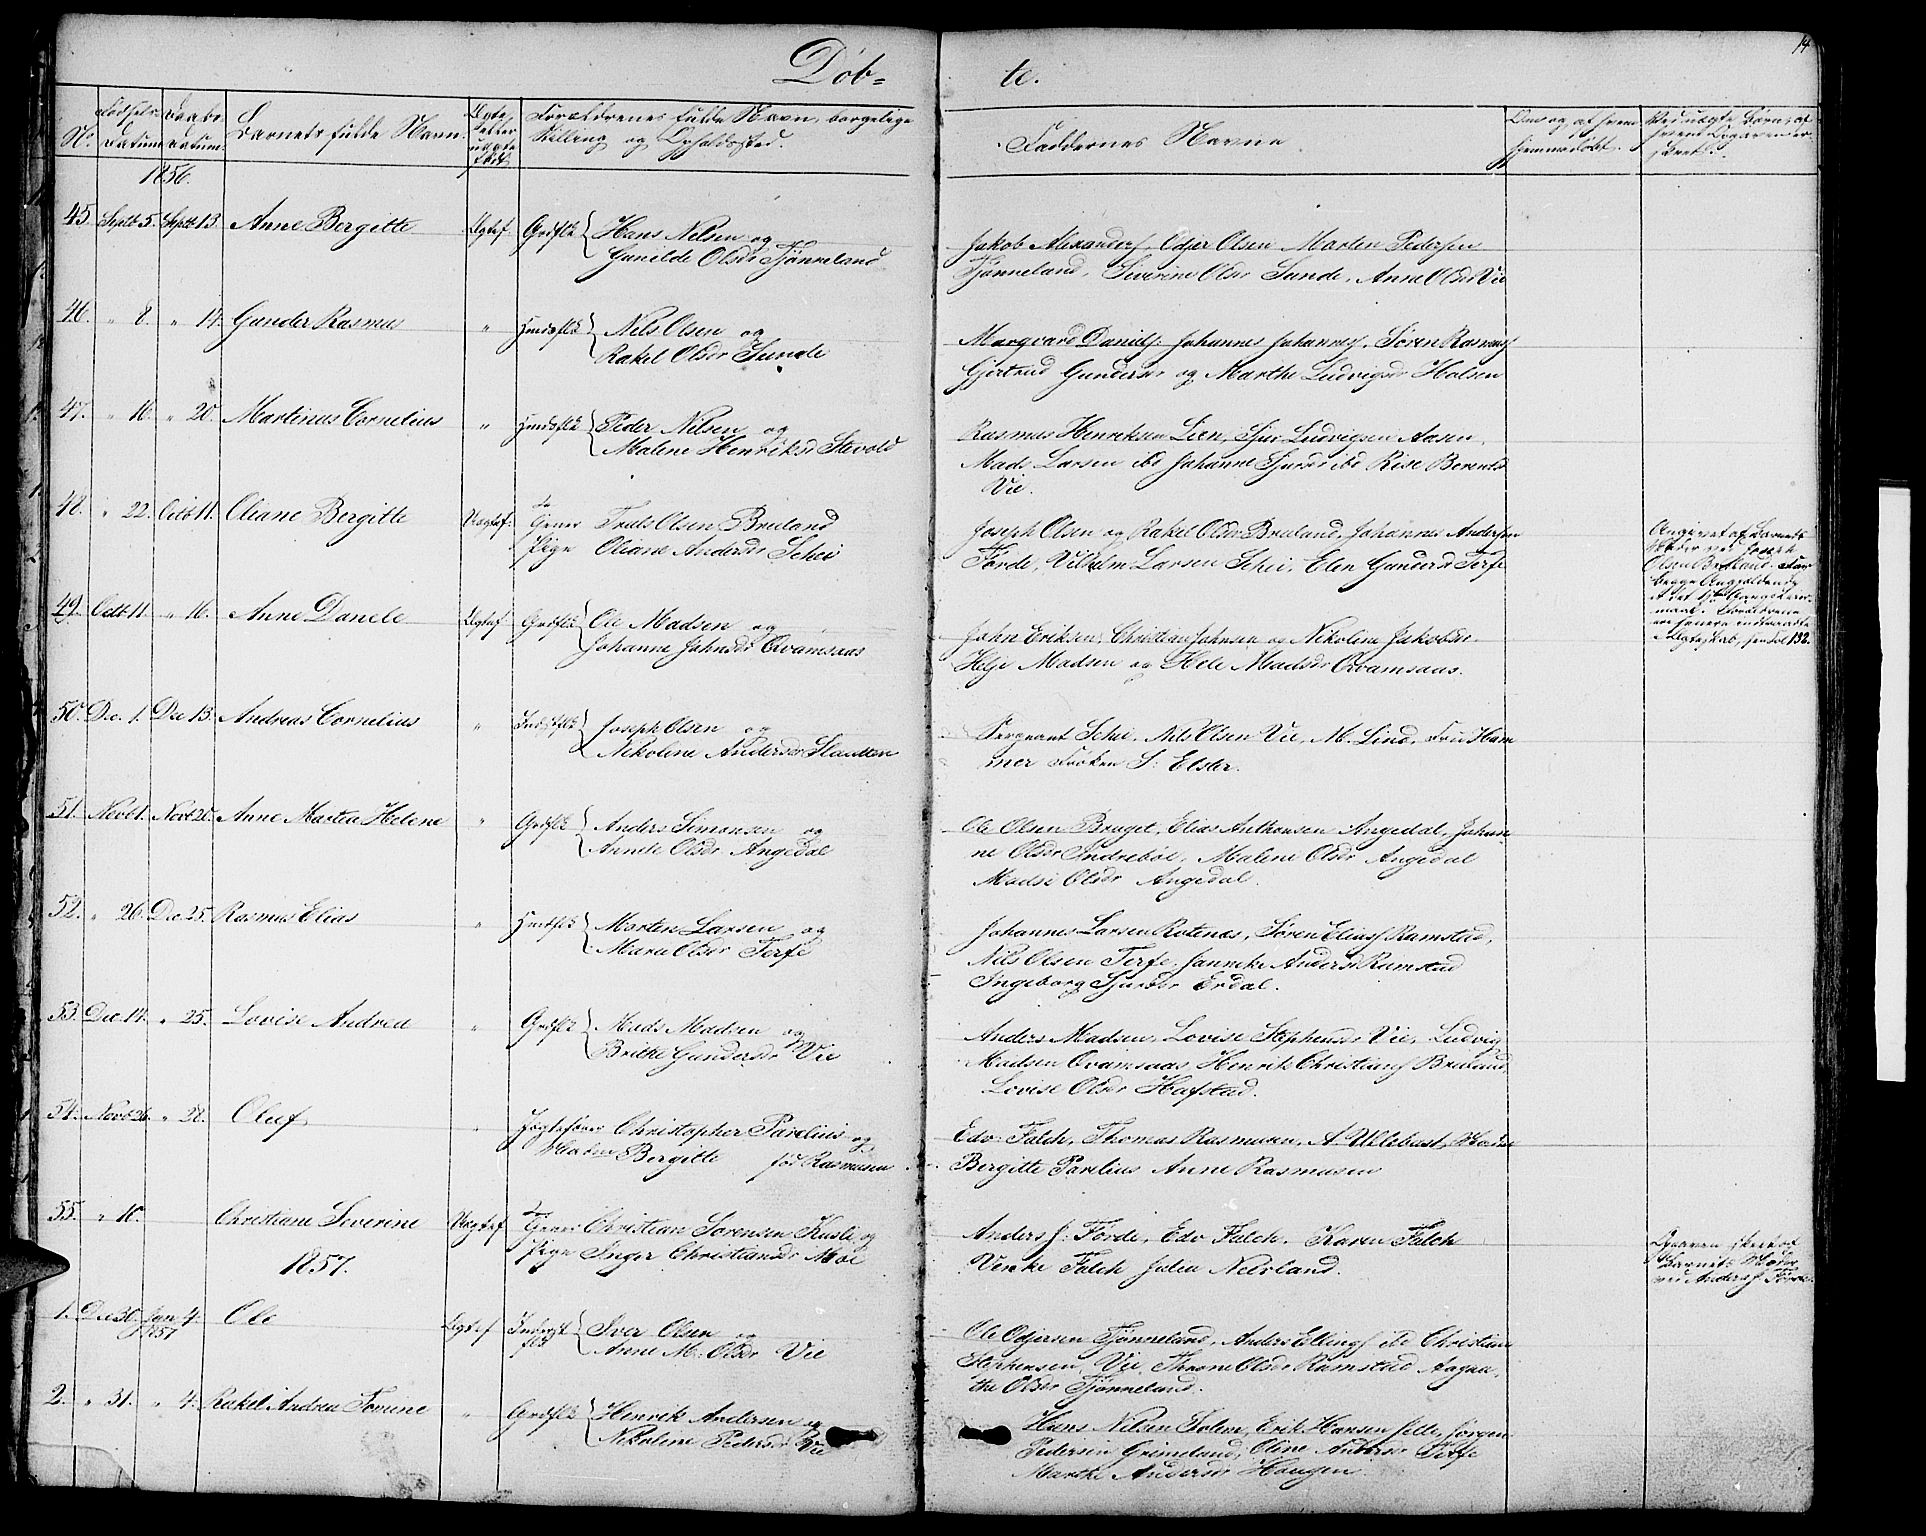 14
Døb= te.
No. Fødsels-Datum Daabs-Datum. Barnets fulde Navn. Ægte eller uægte født Forældrenes fulde Navn, borgelige Stilling og Opholdssted.
Faddernes Navne. hjemmedøbt. Ved uægte Børn, af hvem Opgaven er skeet.
1856.
45. Septb 5. Septb 13 Anne Bergitte Ægtef. Grdflk Hans Nilsen og
Gunilde Olsdr Tjønneland
Jakob Alexanders, Odjer Olsen Marten Pedersen
Tjønneland, Siverine Olsdr Sunde, Anne Olsdr Vie
46. " 8. " 14. Gunder Rasmus " Huusflk Nils Olsen og
Rakel Olsdr Sunde
Marqvard Daniels. Johannes Johannes, Søren Rasmus
Gjertrud Gundersdr og Marthe Ludvigsdr Halsen
47. " 16. " 20. Martinus Cornelius " Huusflk Peder Nilsen og
Malene Henriksdr Stevold
Rasmus Henriksen Lien, Sjur Ludvigsen Aasen,
Mads Larsen ibd Johanne Sjursdr ibd Rise Berentsdr
Vie.
48. " 22. Octb 11. Oliane Bergitte Uægtef. Truls Olsen Bruland
Pige Oliane Andersdr Schei
Joseph Olsen og Rakel Olsdr Bruland, Johannes Andersen
Førde, Vilhelm Larsen Schei, Elen Gundersd Terfe
Angivet af Barnets
Moder ved Joseph
Olsen Bruland. For
begge Angjældende
er det 1ste Gangs Leier-
maal. Forældrene
ere senere indtraadte
i Ægteskab, see Fol 132.
49. Octb 11. " 16. Anne Danele Ægtef. Grdflk Ole Madsen og
Johanne Johnsdr Qvamsaas
John Eriksen, Christian Johnsen og Nikoline Jakobsdr
Helje Madsen og Hele Madsdr Qvamsaas.
50. Dec. 1. Dec 13. Andreas Cornelius " Indstflk Joseph Olsen og
Nikoline Andersdr Slaatten
Sergeant Schei, Nils Olsen Vie, M. Lind, Fru Ham
mer Frøken S. Elster.
51. Novb 1. Novb 20. Anne Martea Helene " Grdflk Anders Simonsen og
Annele Olsdr Angedal
Ole Olsen Bruget, Elias Anthonsen Angedal, Johan-
ne Olsdr Indrebøe, Malene Olsdr Angedal
Madsi Olsdr Angedal.
52. " 26. Dec. 25. Rasmus Elias " Huusflk Morten Larsen og
Mara Olsdr Terfe
Johannes Larsen Rotenæs, Søren Elias Ramstad,
Nils Olsen Terfe, Janneke Andersdr Ramstad
Ingeborg Sjursdr Erdal.
53. Dec. 14. " 25. Lovise Andrea " Grdflk Mads Madsen og
Brithe Gundersdr Vie
Anders Madsen, Lovise Stephensdr Vie, Ludvig
Madsen Qvamsaas Henrik Christians Bruland
Lovise Olsdr Hafstad.
54. Novb 26. " 28. Oluf " Jægtefører Christopher Parelius og
Bergitte fød Rasmusen
Edv. Falch, Thomas Rasmusen,
Bergitte Parelius Anne Rasmusen
55. " 10. Christiane Severine Uægtef Christian Sørensen Kusli og
Pige Inger Christiansdr Moe
Anders J. Førde, Edv Falch, Karen Falch
Venke Falch Julia Nelsland.
Opgaven skeet af
Barnets Moder
ved Anders J Førde.
1857.
1. Dec 30 Jan 4. 1857 Ole Ægtef Inderst flk Iver Olsen og
Anne M. Olsdr Vie
Ole Odjersen Tjønneland, Anders Ellings ibd Christian
Stephensen Vie, Throne Olsdr Ramstad Aagaa-
the Olsdr Tjønneland.
2. " 31. " 4. Rakel Andrea Tomine " Grdflk Henrik Andersen og
Nikoline Pedersdr Vie
Hans Nilsen Solem, Erik Hansen Jørgen
Pedersen Grimeland, Oline Andersdr Terfe
Marthe Andersdr Haugen